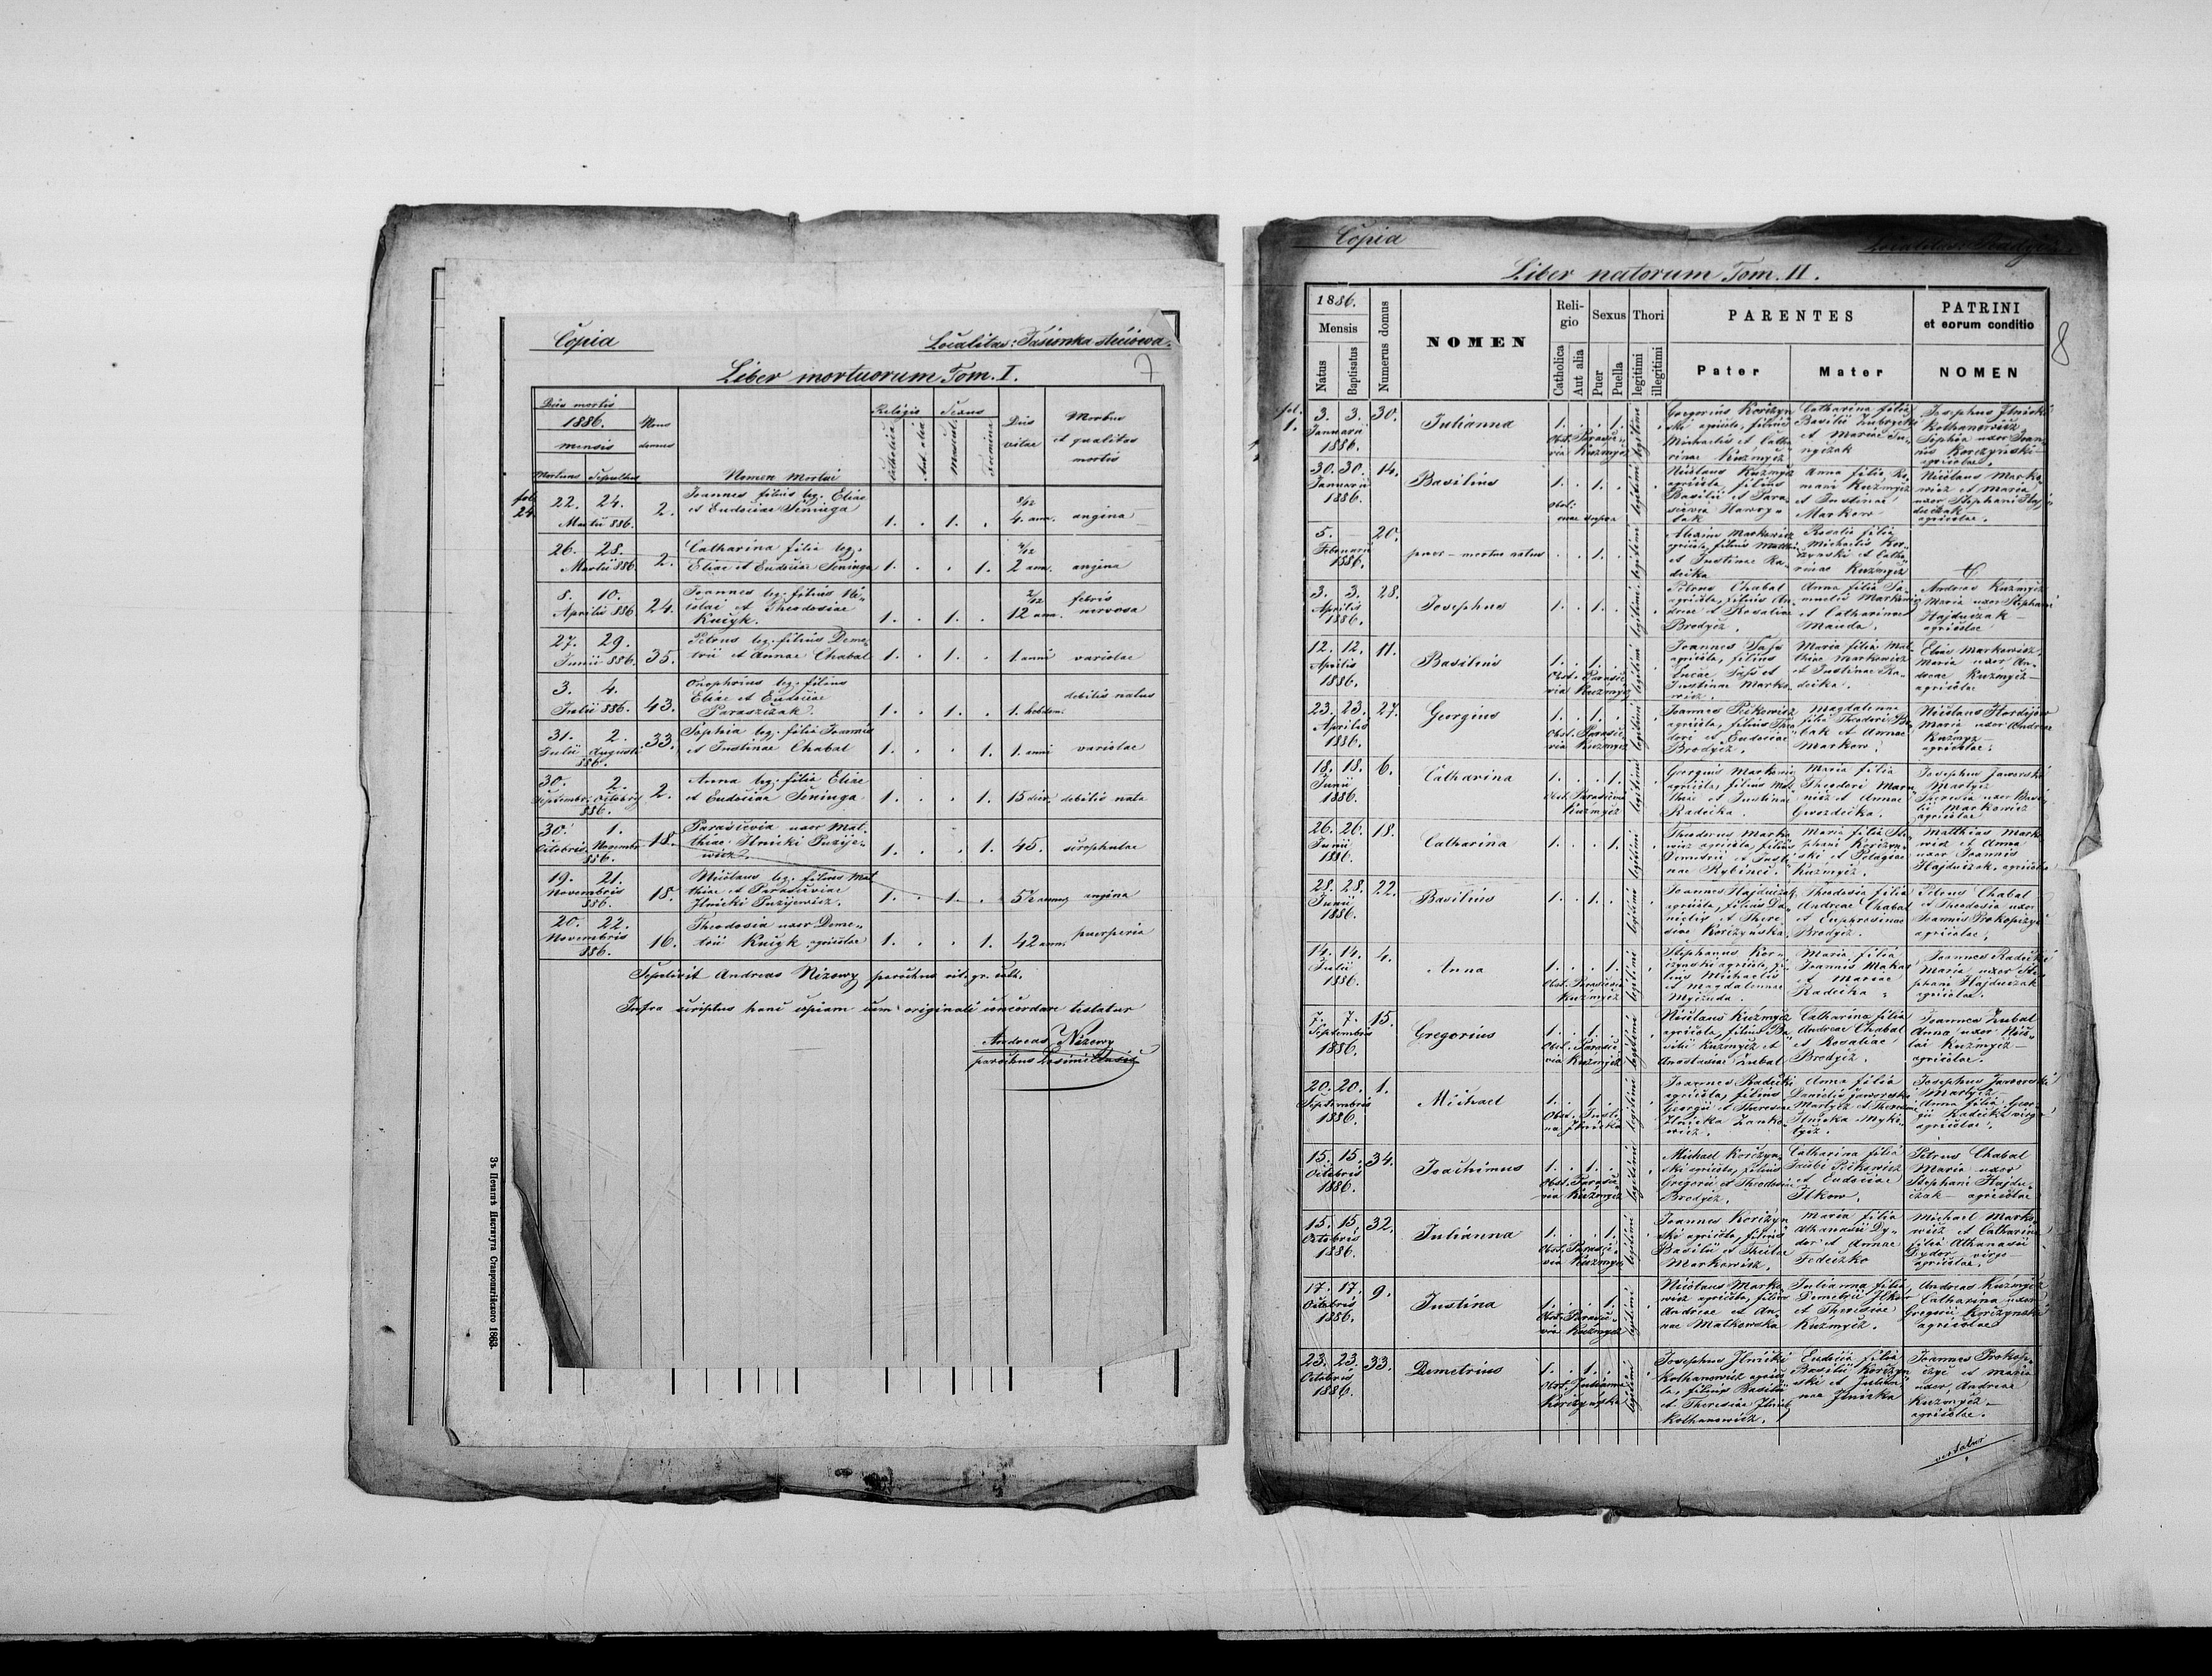 Copia
Localitas: Jasionka
7
Liber mortuorum Tom. I.
Dies mortis
1886.
mensis
Mortuus Sepultus
domus
Nomen Mortui
Religio
Catholica
Aut alia
Sexus
Mascul.
Foemina
Dies
vitae
Morbus
et qualitas
mortis
fol. 24.
22. 24.
Martii 886.
2.
Joannes filius leg. Eliae
et Eudociae Seninga
1. . 1. .
4. ann.
angina
26. 28.
Martii 886.
2.
Catharina filia leg.
Eliae et Eudociae Seninga
1. . . 1.
2 ann.
angina
8. 10.
Aprilis 886
24.
Joannes leg. filius Ni-
colai et Theodosiae
Kucyk.
1. . 1. .
2/12
12 ann.
febris
nervosa
27. 29.
Junii 886.
35.
Petrus leg. filius Deme-
trii et Annae Chabal
1. . 1. .
1. anni
variolae
3. 4.
Julii 886.
43.
Onophrius leg. filius
Eliae et Eudociae
Paraszczak.
1. . 1. .
1. hebdom.
debilis natus
31. 2.
Julii Augusti
886.
33.
Sophia leg. filia Joannis
et Justinae Chabal
1. . . 1.
1. anni
variolae
30. 2.
Septembr. Octobris
886.
2.
Anna leg. filia Eliae
et Eudociae Seninga
1. . . 1.
15 dier.
debilis nata
30. 1.
Octobris Novembr.
886.
18.
Parascevia uxor Mat-
thiae Ilnicki Puzije-
wicz.
1. . . 1.
45.
scrophulae
19. 21.
Novembris
886.
18.
Nicolaus leg. filius Mat
thiae et Parasceviae
Ilnicki Puzijewicz.
1. . 1. .
angina
20. 22.
Novembris
886.
16.
Theodosia uxor Deme-
trii Kucyk agricolae
1. . . 1.
42 ann.
puerperia
Sepelivit Andreas Nizowy parochus rit. gr. cath.
Infra scriptus hanc copiam cum originali concordare testatur
Andreas Nizowy
parochus
Зъ Печатнѣ Института Ставропигійского 1863.
Copia
8
Liber natorum Tom. II.
1886.
Mensis
Natus
Baptisatus
Numerus domus
NOMEN
Reli-
gio
Catholica
Aut alia
Sexus
Puer
Puella
Thori
legitimi
illegitimi
PARENTES
Pater
Mater
PATRINI
et eorum conditio
NOMEN
fol.
1.
3. 3.
Januarii
1886.
30.
Julianna
1. . . 1.
Obst. Parasce-
via Kuźmycz
legitimi
Gregorius Korczyn
ski agricola, filius
Michaelis et Catha
rinae Kuźmycz
Catharina filia
Basilii Zubrycki
et Mariae
Josephus Ilnicki
Kothanowicz
Sophia uxor Joan-
nis Korczynski
agricolae.
30. 30.
Januarii
1886.
14.
Basilius
1. . 1. .
Obst.
supra
legitimi
Nicolaus Kuźmycz
agricola, filius
Basilii et Para-
Anna filia Ro-
mani Kuźmycz
et Justinae
Markow
Nicolaus Marko
wicz et Maria
uxor Stephani Haj
duczak
agricolae.
5.
Februarii
1886.
20.
puer - mortuus natus
. . 1.
legitimi
Alexius Markowicz
agricola, filius Matthi
et Justinae Ra-
decka
Rosalia filia
Michaelis Kor-
czynski et Catha
rinae Kuźmycz
3. 3.
Aprilis
1886.
28.
Josephus
1. . 1. .
legitimi
Petrus Chabal
agricola, filius An-
dreae et Rosaliae
Brodycz.
Anna filia Sa-
muelis Markowicz
et Catharinae
Manda.
Andreas Kuźmycz
Maria uxor Stephani
Hajduczak
agricolae
12. 12.
Aprilis
1886.
11.
Basilius
1. . 1. .
Obst. Parasce-
via Kuźmycz
legitimi
Joannes Sass
agricola, filius
Lucae Sass et
Justinae Marko
wicz.
Maria filia Mat
thiae Markowicz
et Justinae Ra-
decka.
Elias Markowicz
Maria uxor An-
dreae Kuźmycz
agricolae
23. 23.
Aprilis
1886.
27.
Georgius
1. . 1. .
Obst. Parasce-
via Kuźmycz
legitimi
Joannes Pitkowicz
agricola, filius Theo
dori et Eudociae
Brodycz.
Magdalenna
filia Theodori
et Annae
Markow.
Nicolaus
Maria uxor Andreae
Kuźmycz
agricolae.
18. 18.
Junii
1886.
6.
Catharina
1. . . 1.
Obst. Parascevia
Kuźmycz
legitimi
Georgius Markowicz
agricola, filius Mat
thiae et Justinae
Radecka.
Maria filia
Theodori
et Annae
Gwozdecka.
Josephus Jaworski
Martycz
Theresia uxor Basi-
lii Markowicz
agricolae
26. 26.
Junii
1886.
18.
Catharina
1. . . 1.
legitimi
Theodorus Marko
wicz agricola, filius
Demetrii et Justi
nae Rybinci.
Maria filia Ste
phani Korczyn-
ski et Pelagiae
Kuźmycz.
Matthias Marko
wicz et Anna
uxor Joannis
Hajduczak, agricolae
28. 28.
Junii
1886.
22.
Basilius
1. . 1. .
legitimi
Joannes Hajduczak
agricola, filius Da-
nielis et There
siae Korczynska.
Theodosia filia
Andreae Chabal
et Euphrosinae
Brodycz.
Petrus Chabal
et Theodosia uxor
Joannis Prokopczyc
agricolae.
14. 14.
Julii
1886.
4.
Anna
1. . . 1.
Obst. Parascevia
Kuźmycz
legitimi
Stephanus Kor-
czynski agricola, fi-
lius Michaelis
et Magdalennae
Myczuda.
Maria filia
Joannis Makar
et Mariae
Radecka.
Joannes Radecki
Maria uxor Ste
phani Hajduczak
agricolae.
7. 7.
Septembris
1886.
15.
Gregorius
1. . 1. .
Obst. Parasce-
via Kuźmycz
legitimi
Nicolaus Kuźmycz
agricola, filius Ba-
silii Kuźmycz et
Anastasiae Zubal
Catharina filia
Andreae Chabal
et Rosaliae
Brodycz.
Joannes Zubal
Anna uxor Nico-
lai Kuźmycz
agricolae.
20. 20.
Septembris
1886.
1.
Michael
1. . 1. .
Obst. Justi-
na Ilnicka
legitimi
Joannes Radecki
agricola, filius
Georgii et Theresiae
Ilnicka
Anna filia
Danielis Jaworski
Martycz et Theresiae
Ilnicka Myki-
tycz.
Josephus Jaworski
Martycz
Anna filia Geor-
gii Radecki virgo
agricolae.
15. 15.
Octobris
1886.
34.
Joachimus
1. . 1. .
Obst. Parasce-
via Kuźmycz
legitimi
Michael Korczyn-
ski agricola, filius
Gregorii et Theodosiae
Brodycz.
Catharina filia
Jacobi Pitkowicz
et Eudociae
Ilkow.
Petrus Chabal
Maria uxor
Stephani Hajdu-
czak agricolae
15. 15.
Octobris
1886.
32.
Julianna
1. . . 1.
Obst. Parasce-
via Kuźmycz
legitimi
Joannes Korczyn
ski agricola, filius
Basilii et Theclae
Markowicz.
Maria filia
Athanasii Dy-
dor et Annae
Fedeczko
Michael Marko-
wicz et Catharina
filia Athanasii
Dydor virgo
agricolae.
17. 17.
Octobris
1886.
9.
Justina
1. . . 1.
Obst. Parasce-
via Kuźmycz
legitimi
Nicolaus Marko
wicz agricola, filius
Andreae et An-
nae Matkowska
Julianna filia
Demetrii Ilkow
et Theresiae
Kuźmycz.
Andreas Kuźmycz
Catharina uxor
Gregorii Korczynski
agricolae
23. 23.
Octobris
1886.
33.
Demetrius
1. . 1. .
Obst. Julianna
Korczynska
legitimi
Josephus Ilnicki
Kothanowicz agrico
la, filius Basilii
et Theresiae Ilnicki
Kothanowicz.
Eudocia filia
Basilii Korczyn
ski et Julian-
nae Ilnicka
Joannes Prokop-
czyc et Maria
uxor Andreae
Kuźmycz
agricolae.
vertatur